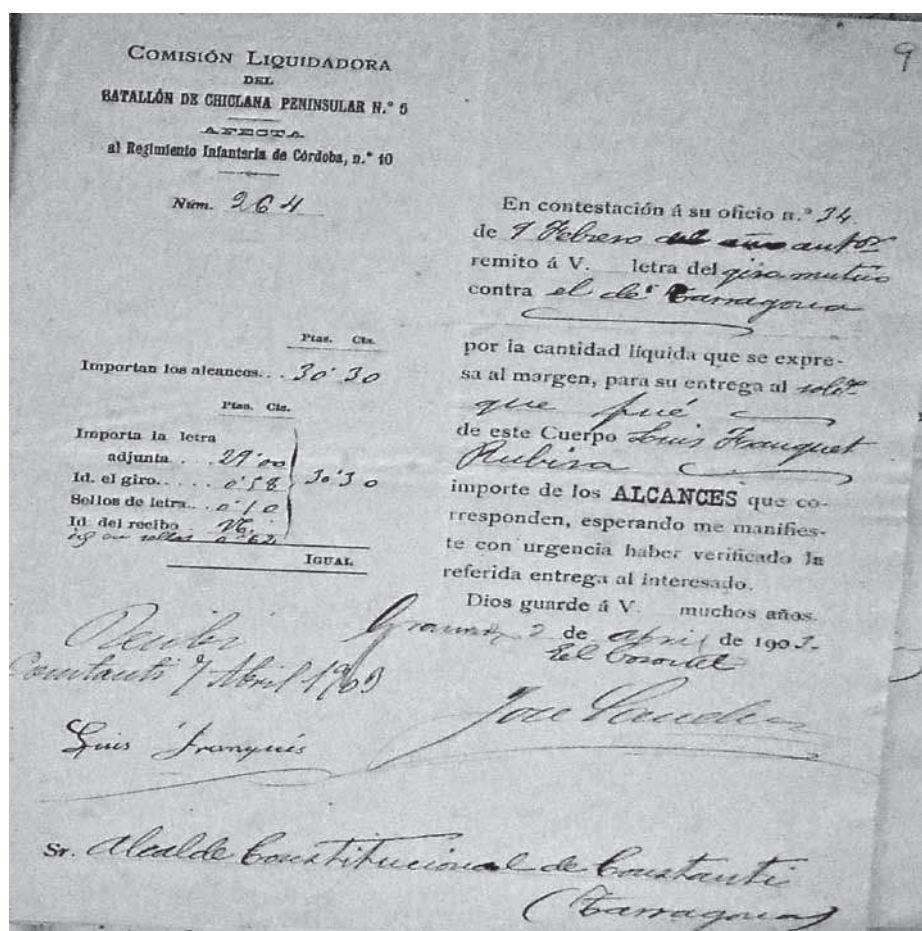 9
COMISIÓN LIQUIDADORA
DEL
BATALLÓN DE CHICLANA PENINSULAR N.º 5
AFECTA
al Regimiento Infantería de Córdoba, n.º 10
Núm. 264
Ptas. Cts.
Importan los alcances.. 30'30
Ptas. Cts.
Importa la letra
adjunta . . 29'00
Id. el giro..... 0'58
30'30
Sellos de letra.. 0'10
Id. del recibo
sellos 0'62
IGUAL
En contestación á su oficio n.º 34
de 9 Febrero del año antor
remito á V. letra del giro mutuo
contra el de Tarragona
por la cantidad líquida que se expre-
sa al margen, para su entrega al sold.º
que fué
de este Cuerpo Luis Franquet
Rubira
importe de los ALCANCES que co-
rresponden, esperando me manifies-
te con urgencia haber verificado la
referida entrega al interesado.
Dios guarde á V. muchos años.
de abril de 190
El Coronel
José
Recibí
Constanti 7 Abril 1903
Luis Franqués
Sr. Alcalde Constitucional de Constanti
(Tarragona)